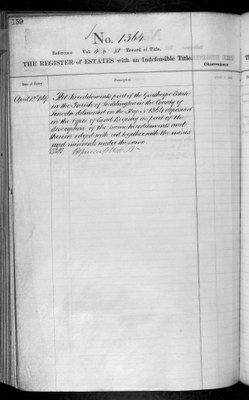 359
No. 1364
Reference Vol. Record of Title.
THE REGISTER of ESTATES with an Indefeasible Title.
Observations
Date of Entry
Description
April 1869 The hereditaments part of the Estate
in the Parish of in the County of
delineated on the Map No 1364 deposited
in the Office of Land Registry as part of the
description of the same hereditaments and
therein edged with red together with the mines
and minerals under the same